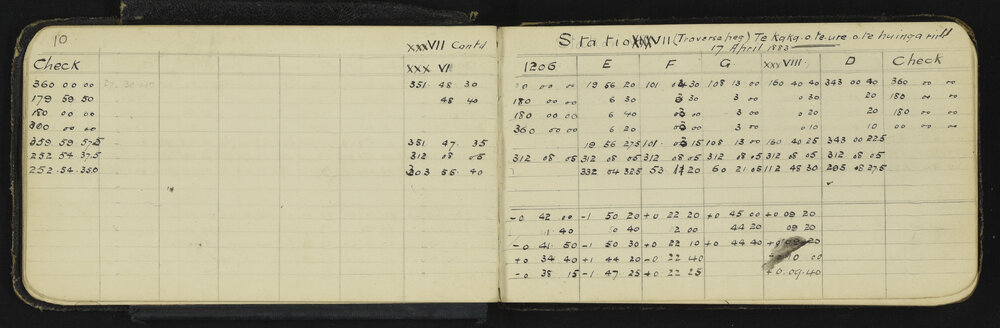 10
XXXVII Contd
Check XXX VI
360 00 00 351 48 30
179 59 50 48 40
180 00 00
360 00 00
359 59 57.5 351 47. 35
252 54 37.5 312 08 05
252.54.35.0 303 55. 40
Station XXXVII (Traverse peg) Te Kaka.o te ure o te huinga
17 April 1883
1206 E F G XXXVIII D Check
00 00 19 56 20 101 30 108 13 00 160 40 40 343 00 40 360 00 00
180 00 00 6 30 30 3 00 0 30 20 180 00 00
180 00 00 6 40 00 3 00 0 20 20 180 00 00
360 00 00 6 20 00 3 00 0 10 10 00 00 00
19 56 27.5 101. 15 108 13 00 160 40 25 343 00 22.5
312 08 05 312 08 05 312 08 05 312 08 05 312 08 05 312 08 05
332 04 32.5 53 20 60 21 05 112 48 30 295 08 27.5
-0 42 00 -1 50 20 +0 22 20 +0 45 00 +0 09 20
1 40 0 40 2 00 44 20 09 20
-0 41 50 -1 50 30 +0 22 10 +0 44 40 +0 09 20
+0 34 40 +1 44 20 -0 22 40 10 00
-0 38 15 -1 47 25 +0 22 25 +0.09.40